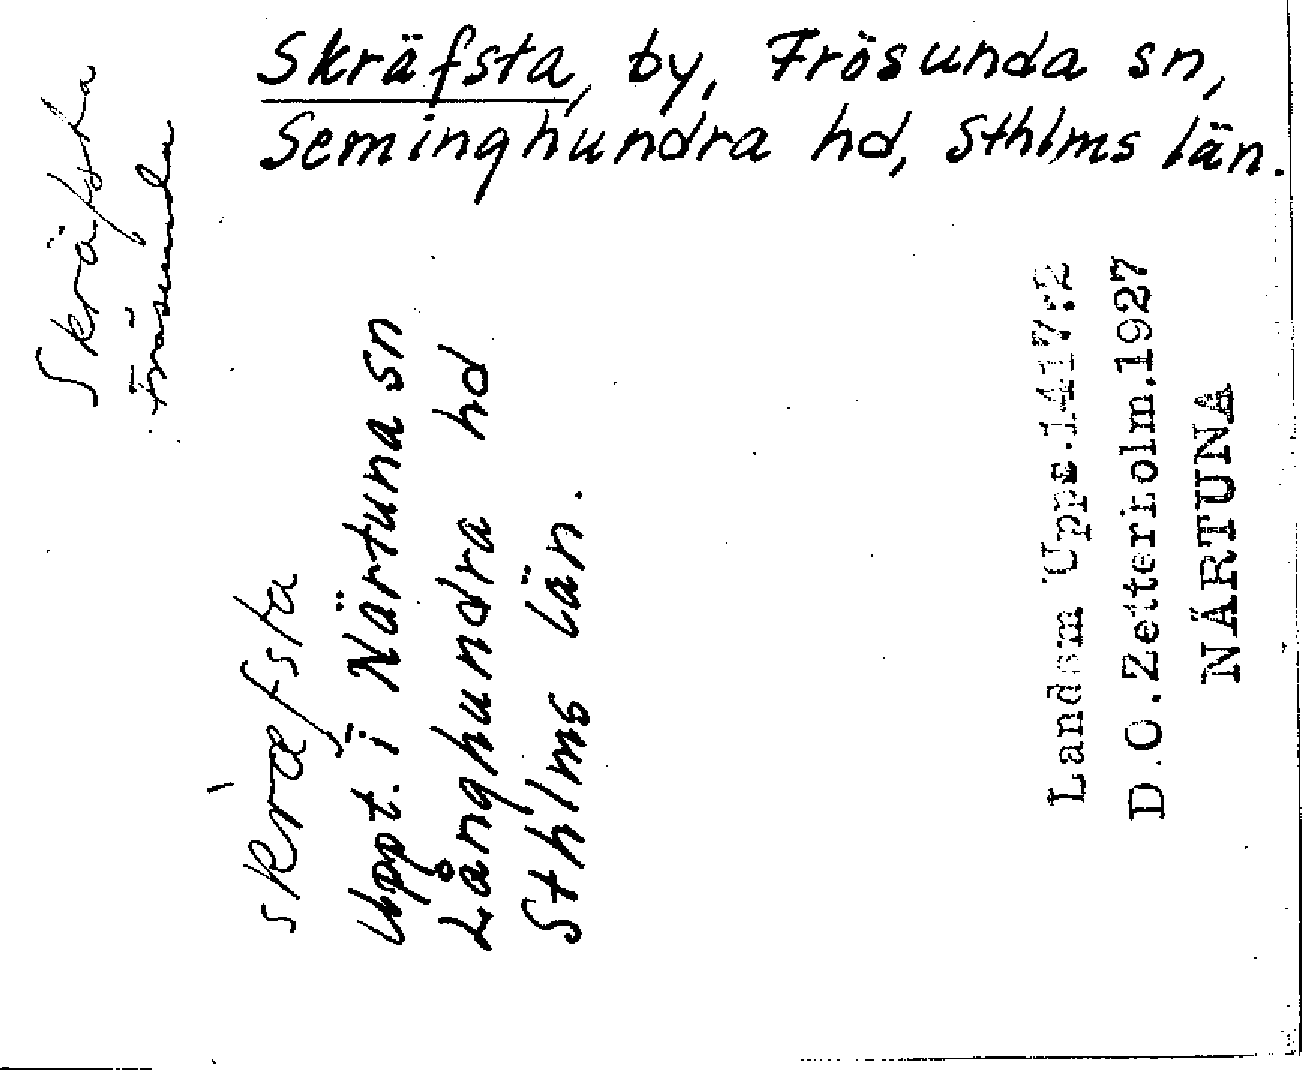 Skräfsta, by, Frösunda sn,
Seminghundra hd, Sthlms län.
Skräfsta
Frösunda
skræfsta
Uppt. i Närtuna sn
Långhundra hd
Sthlms län.
Landsm Upps.1417:2
D.O.Zetterholm.1927
NÄRTUNA